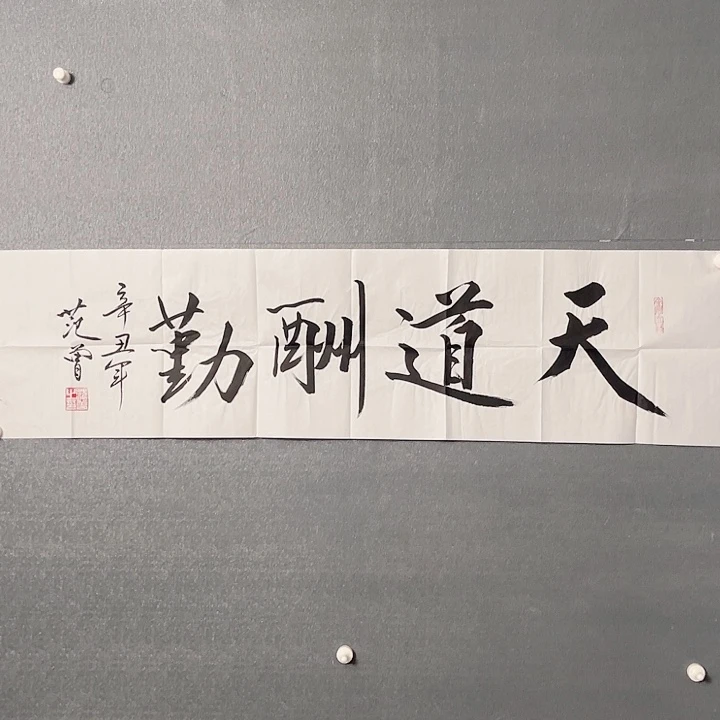 天道酬勤
辛丑年
范曾